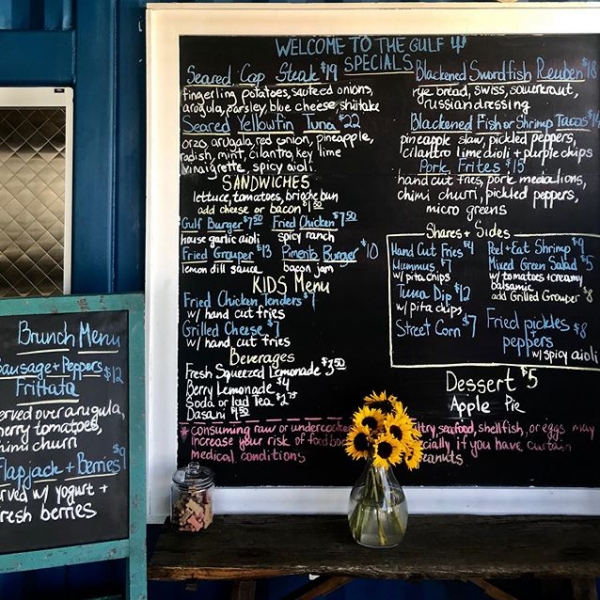 WELCOME TO THE GULF
SPECIALS
Seared Cap Steak $19
fingerling potatoes, sauteed onions,
arugula, parsley, blue cheese, shiitake
Seared Yellowfin Tuna $22
orzo, arugala, red onion, pineapple,
radish, mint, cilantro, key lime
vinaigrette, spicy aioli
SANDWICHES
lettuce, tomatoes, brioche bun
add cheese or bacon $1.50
Gulf Burger $7.50 Fried Chicken $7.50
house garlic aioli spicy ranch
Fried Grouper $13 Pimento Burger $10
lemon dill sauce bacon jam
KIDS Menu
Fried Chicken Tenders $7
w/ hand cut fries
Grilled Cheese $7
w/ hand cut fries
Beverages
Fresh Squeezed Lemonade $3.50
Berry Lemonade $4
Soda or Iced Tea $2.75
Dasani $1.50
Blackened Swordfish Reuben $18
rye bread, swiss, sauerkraut,
russian dressing
Blackened Fish or Shrimp Tacos
pineapple slaw, pickled peppers,
cilantro lime aioli + purple chips
Pork Frites $15
hand cut fries, pork medallions,
chimi churri, pickled peppers,
micro greens
Shares + Sides
Hand Cut Fries $4
Hummus $7
w/ pita chips
Tuna Dip $12
w/ pita chips
Street Corn $7
Peel + Eat Shrimp $9
Mixed Green Salad $5
w/ tomatoes + creamy
balsamic
add Grilled Grouper $8
Fried pickles $8
+ peppers
w/ spicy aioli
Dessert $5
Apple Pie
* consuming raw or undercooked ltry, seafood, shellfish, or eggs may
increase your risk of food cially if you have curtain
medical conditions eanuts
Brunch Menu
Sausage + Peppers $12
Frittata
erved over arugula,
herry tomatoes,
himi churri
Flapjack + Berries $9
rved w/ yogurt +
resh berries